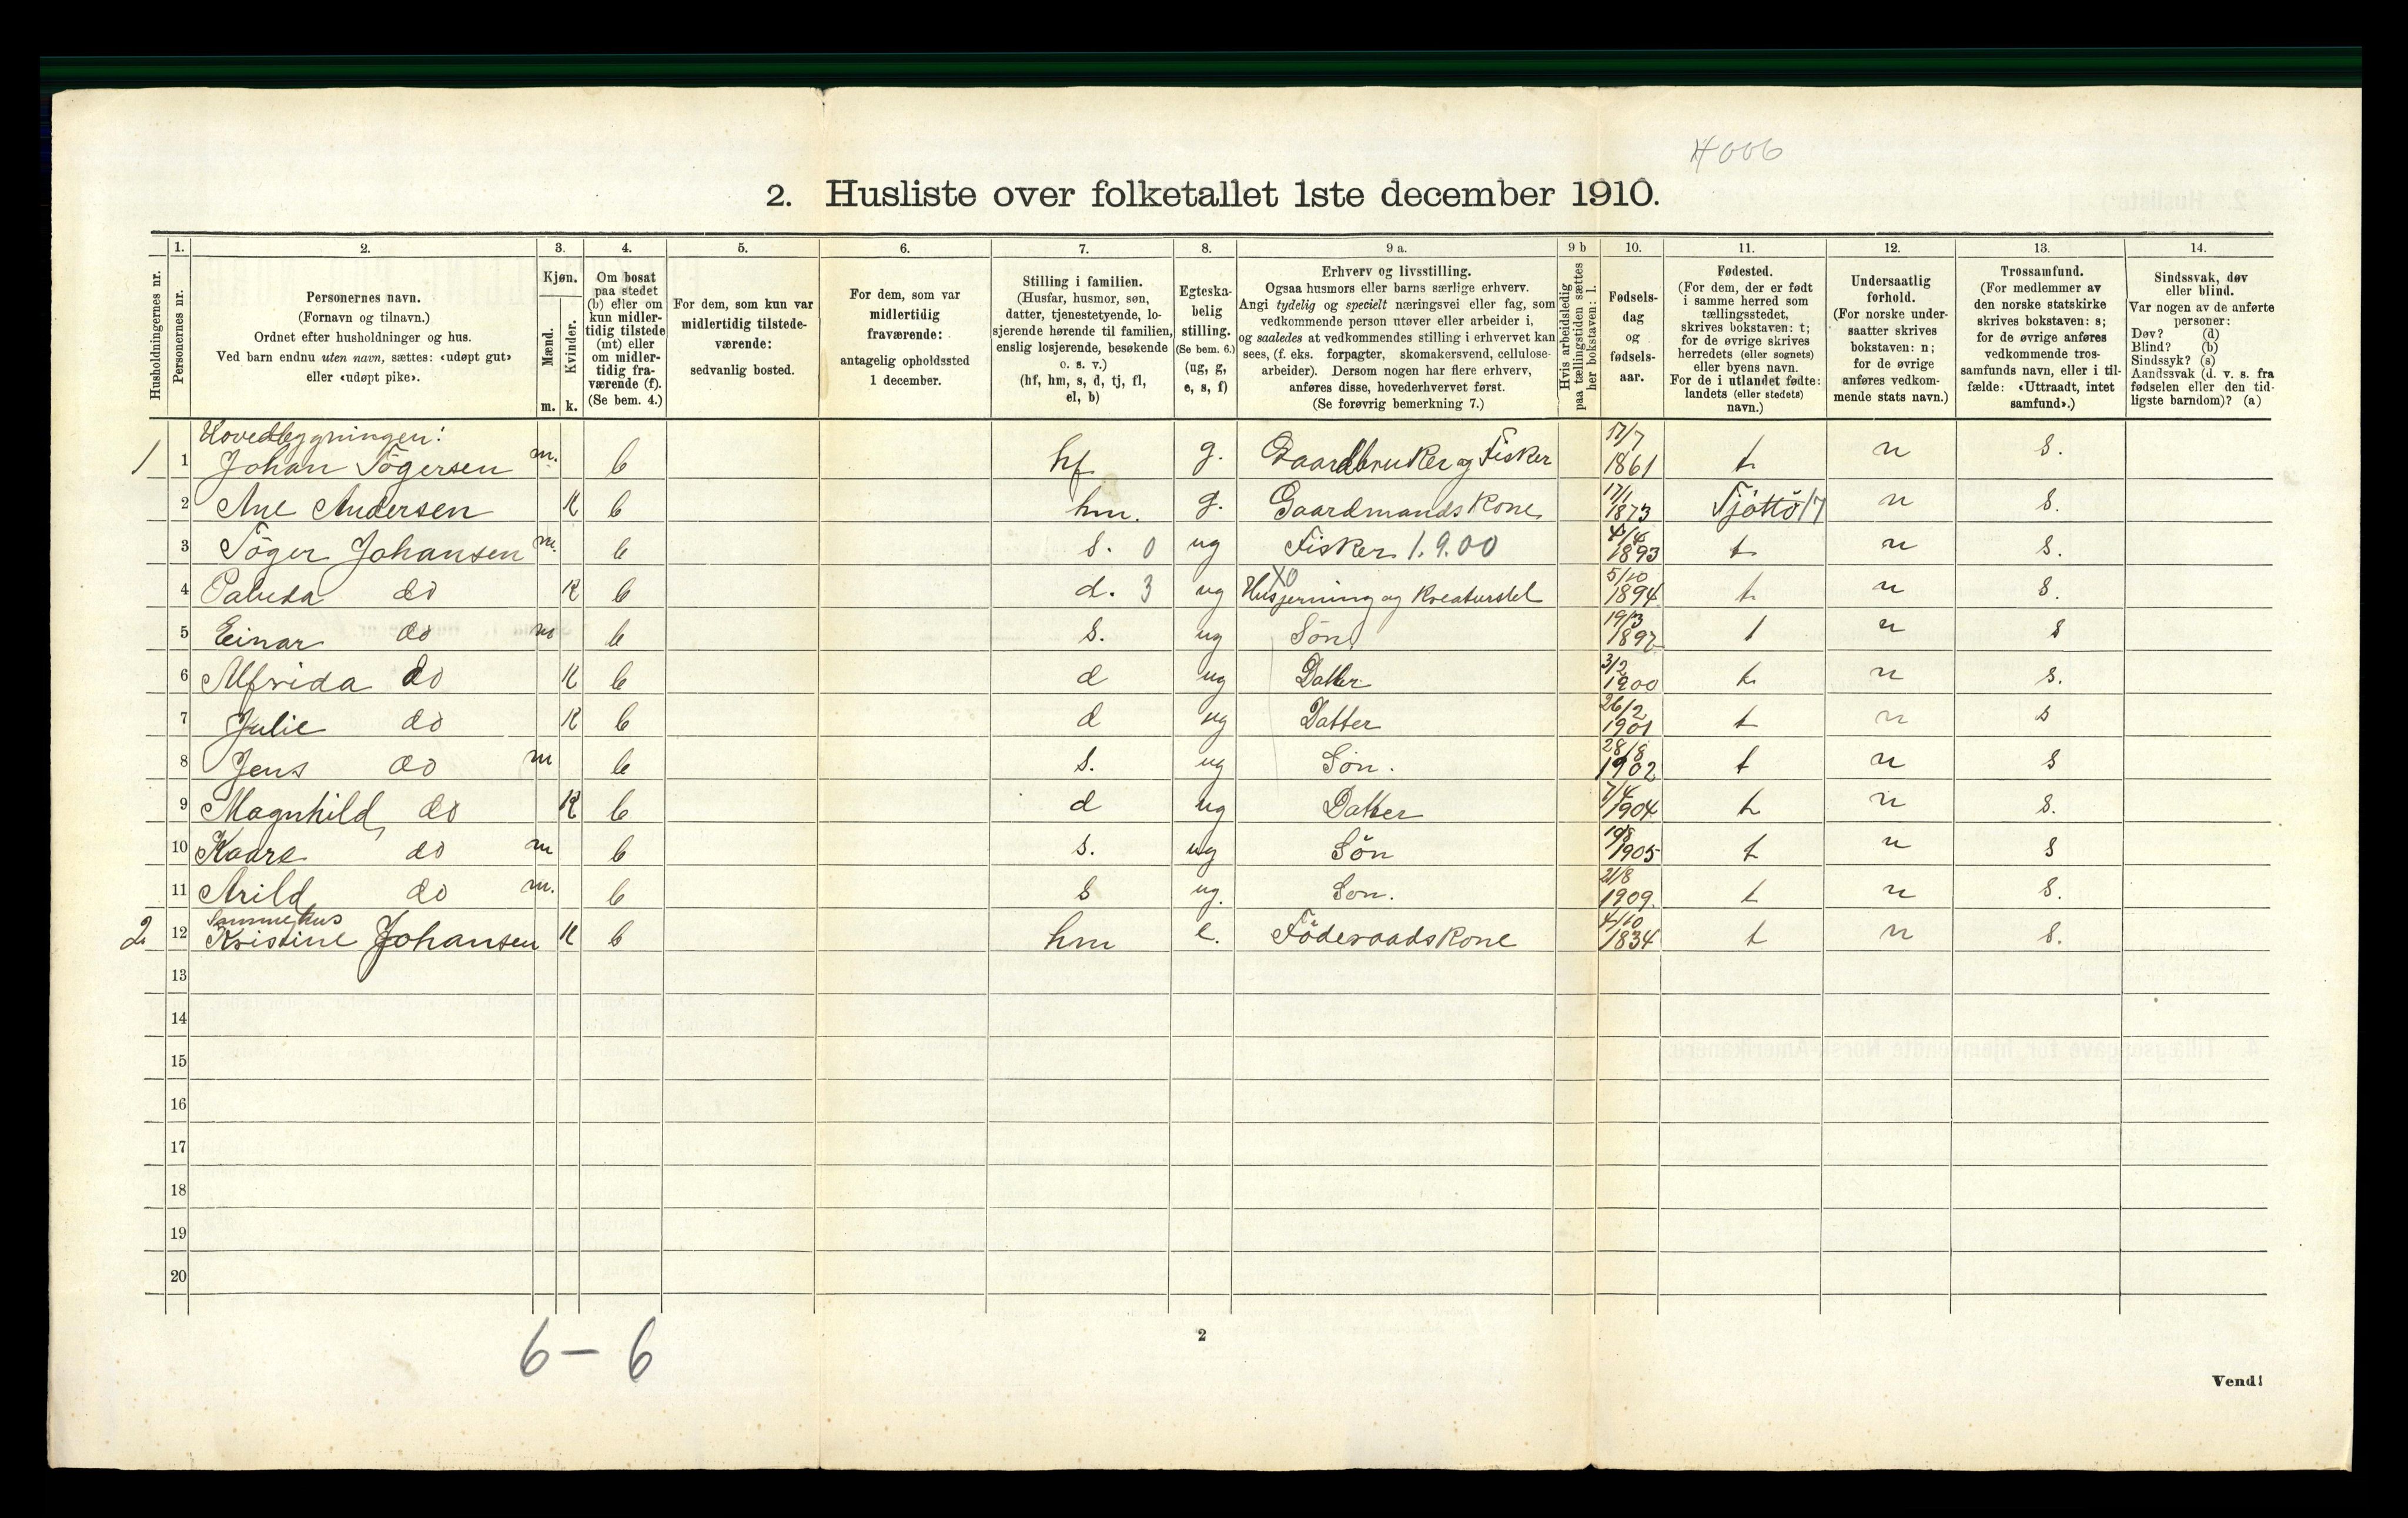 4006
2. Husliste over folketallet 1ste december 1910.
Husholdningernes nr.
1.
Personernes nr.
2.
Personernes navn.
(Fornavn og tilnavn.)
Ordnet efter husholdninger og hus.
Ved barn endnu uten navn, sættes: «udøpt gut»
eller «udøpt pike».
3.
Kjøn.
Mænd.
Kvinder.
m. k.
4.
Om bosat
paa stedet
(b) eller om
kun midler-
tidig tilstede
(mt) eller
om midler-
tidig fra-
værende (f).
(Se bem. 4.)
5.
For dem, som kun var
midlertidig tilstede-
værende:
sedvanlig bosted.
6.
For dem, som var
midlertidig
fraværende:
antagelig opholdssted
1 december.
7.
Stilling i familien.
(Husfar, husmor, søn,
datter, tjenestetyende, lo-
sjerende hørende til familien,
enslig losjerende, besøkende
o. s. v.)
(hf, hm, s, d, tj, fl,
el, b)
8.
Egteska-
belig
stilling.
(Se bem. 6.)
(ug, g,
e, s, f)
9 a.
Erhverv og livsstilling.
Ogsaa husmors eller barns særlige erhverv.
Angi tydelig og specielt næringsvei eller fag, som
vedkommende person utøver eller arbeider i,
og saaledes at vedkommendes stilling i erhvervet kan
sees, (f. eks. forpagter, skomakersvend, cellulose-
arbeider). Dersom nogen har flere erhverv,
anføres disse, hovederhvervet først.
(Se forøvrig bemerkning 7.)
9 b
Hvis arbeidsledig
paa tællingstiden sættes
her bokstaven: l.
10.
Fødsels-
dag
og
fødsels-
aar.
11.
Fødested.
(For dem, der er født
i samme herred som
tællingsstedet,
skrives bokstaven: t;
for de øvrige skrives
herredets (eller sognets)
eller byens navn.
For de i utlandet fødte:
landets (eller stedets)
navn.)
12.
Undersaatlig
forhold.
(For norske under-
saatter skrives
bokstaven: n;
for de øvrige
anføres vedkom-
mende stats navn.)
13.
Trossamfund.
(For medlemmer av
den norske statskirke
skrives bokstaven: s;
for de øvrige anføres
vedkommende tros-
samfunds navn, eller i til-
fælde: «Uttraadt, intet
samfund».)
14.
Sindssvak, døv
eller blind.
Var nogen av de anførte
personer:
Døv? (d)
Blind? (b)
Sindssyk? (s)
Aandssvak (d. v. s. fra
fødselen eller den tid-
ligste barndom)? (a)
Hovedbygningen:
1 1 Johan Tögersen m. b hf g. Gaardbruker og Fisker 17/7 1861 t n s.
2 Ane Andersen K b hm. g. Gaardmandskone 17/1 1873 Tjöttö 17 n s.
3 Töger Johansen m. b s. 0 ug Fisker 1.9.00 4/4 1893 t n s.
4 Paluda do K b d. 3 ug Husgjerning og Kreaturstel 5/10 1894 t n s.
5 Einar do m b s. ug Sön 19/3 1897 t n s
6 Alfrida do K b d ug Datter 3/2 1900 t n s.
7 Julie do K b d ug Datter 26/2 1901 t n s
8 Jens do m b s. ug Sön. 28/8 1902 t n s
9 Magnhild do K b d ug Datter 7/4 1904 t n s.
10 Kaare do m b s. ug Sön 19/8 1905 t n s
11 Arild do m. b s ug. Son. 21/8 1909. t n s.
Samme hus
2 12 Kristine Johansen K b hm e. Föderaadskone 4/10 1834 t n s.
13
14
15
16
17
18
19
20
6 – 6
2
Vend!